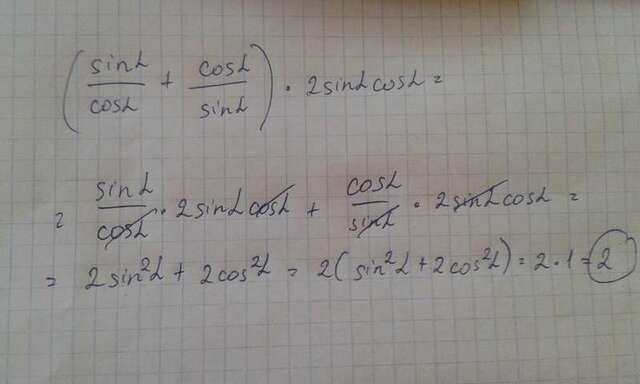 (sinα/cosα + cosα/sinα) · 2sinα cosα =
= sinα/cosα · 2sinα cosα + cosα/sinα · 2sinα cosα =
= 2sin²α + 2cos²α = 2(sin²α + 2cos²α) = 2·1 = 2